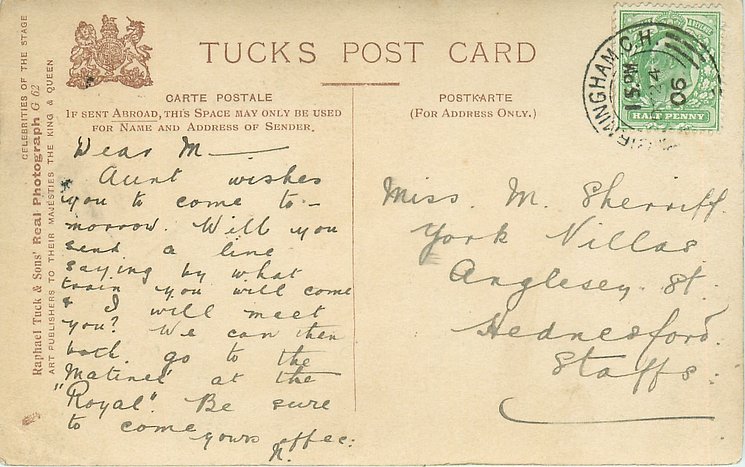 CELEBRITIES OF THE STAGE
Raphael Tuck & Sons' Real Photograph G 62
ART PUBLISHERS TO THEIR MAJESTIES THE KING & QUEEN
TUCKS POST CARD
CARTE POSTALE
IF SENT ABROAD, THIS SPACE MAY ONLY BE USED
FOR NAME AND ADDRESS OF SENDER.
POSTKARTE
(FOR ADDRESS ONLY.)
BIRMINGHAM C.H.
1 15 PM
24
06
HALF PENNY
Dear M—
Aunt wishes
you to come to-
morrow. Will you
send a line
saying by what
train you will come
& I will meet
you? We can then
both go to the
Matinee at the
"Royal". Be sure
to come
yours affec:
N.
Miss. M. Sherriff.
York Villas
Anglesey St.
Hednesford.
Staffs.